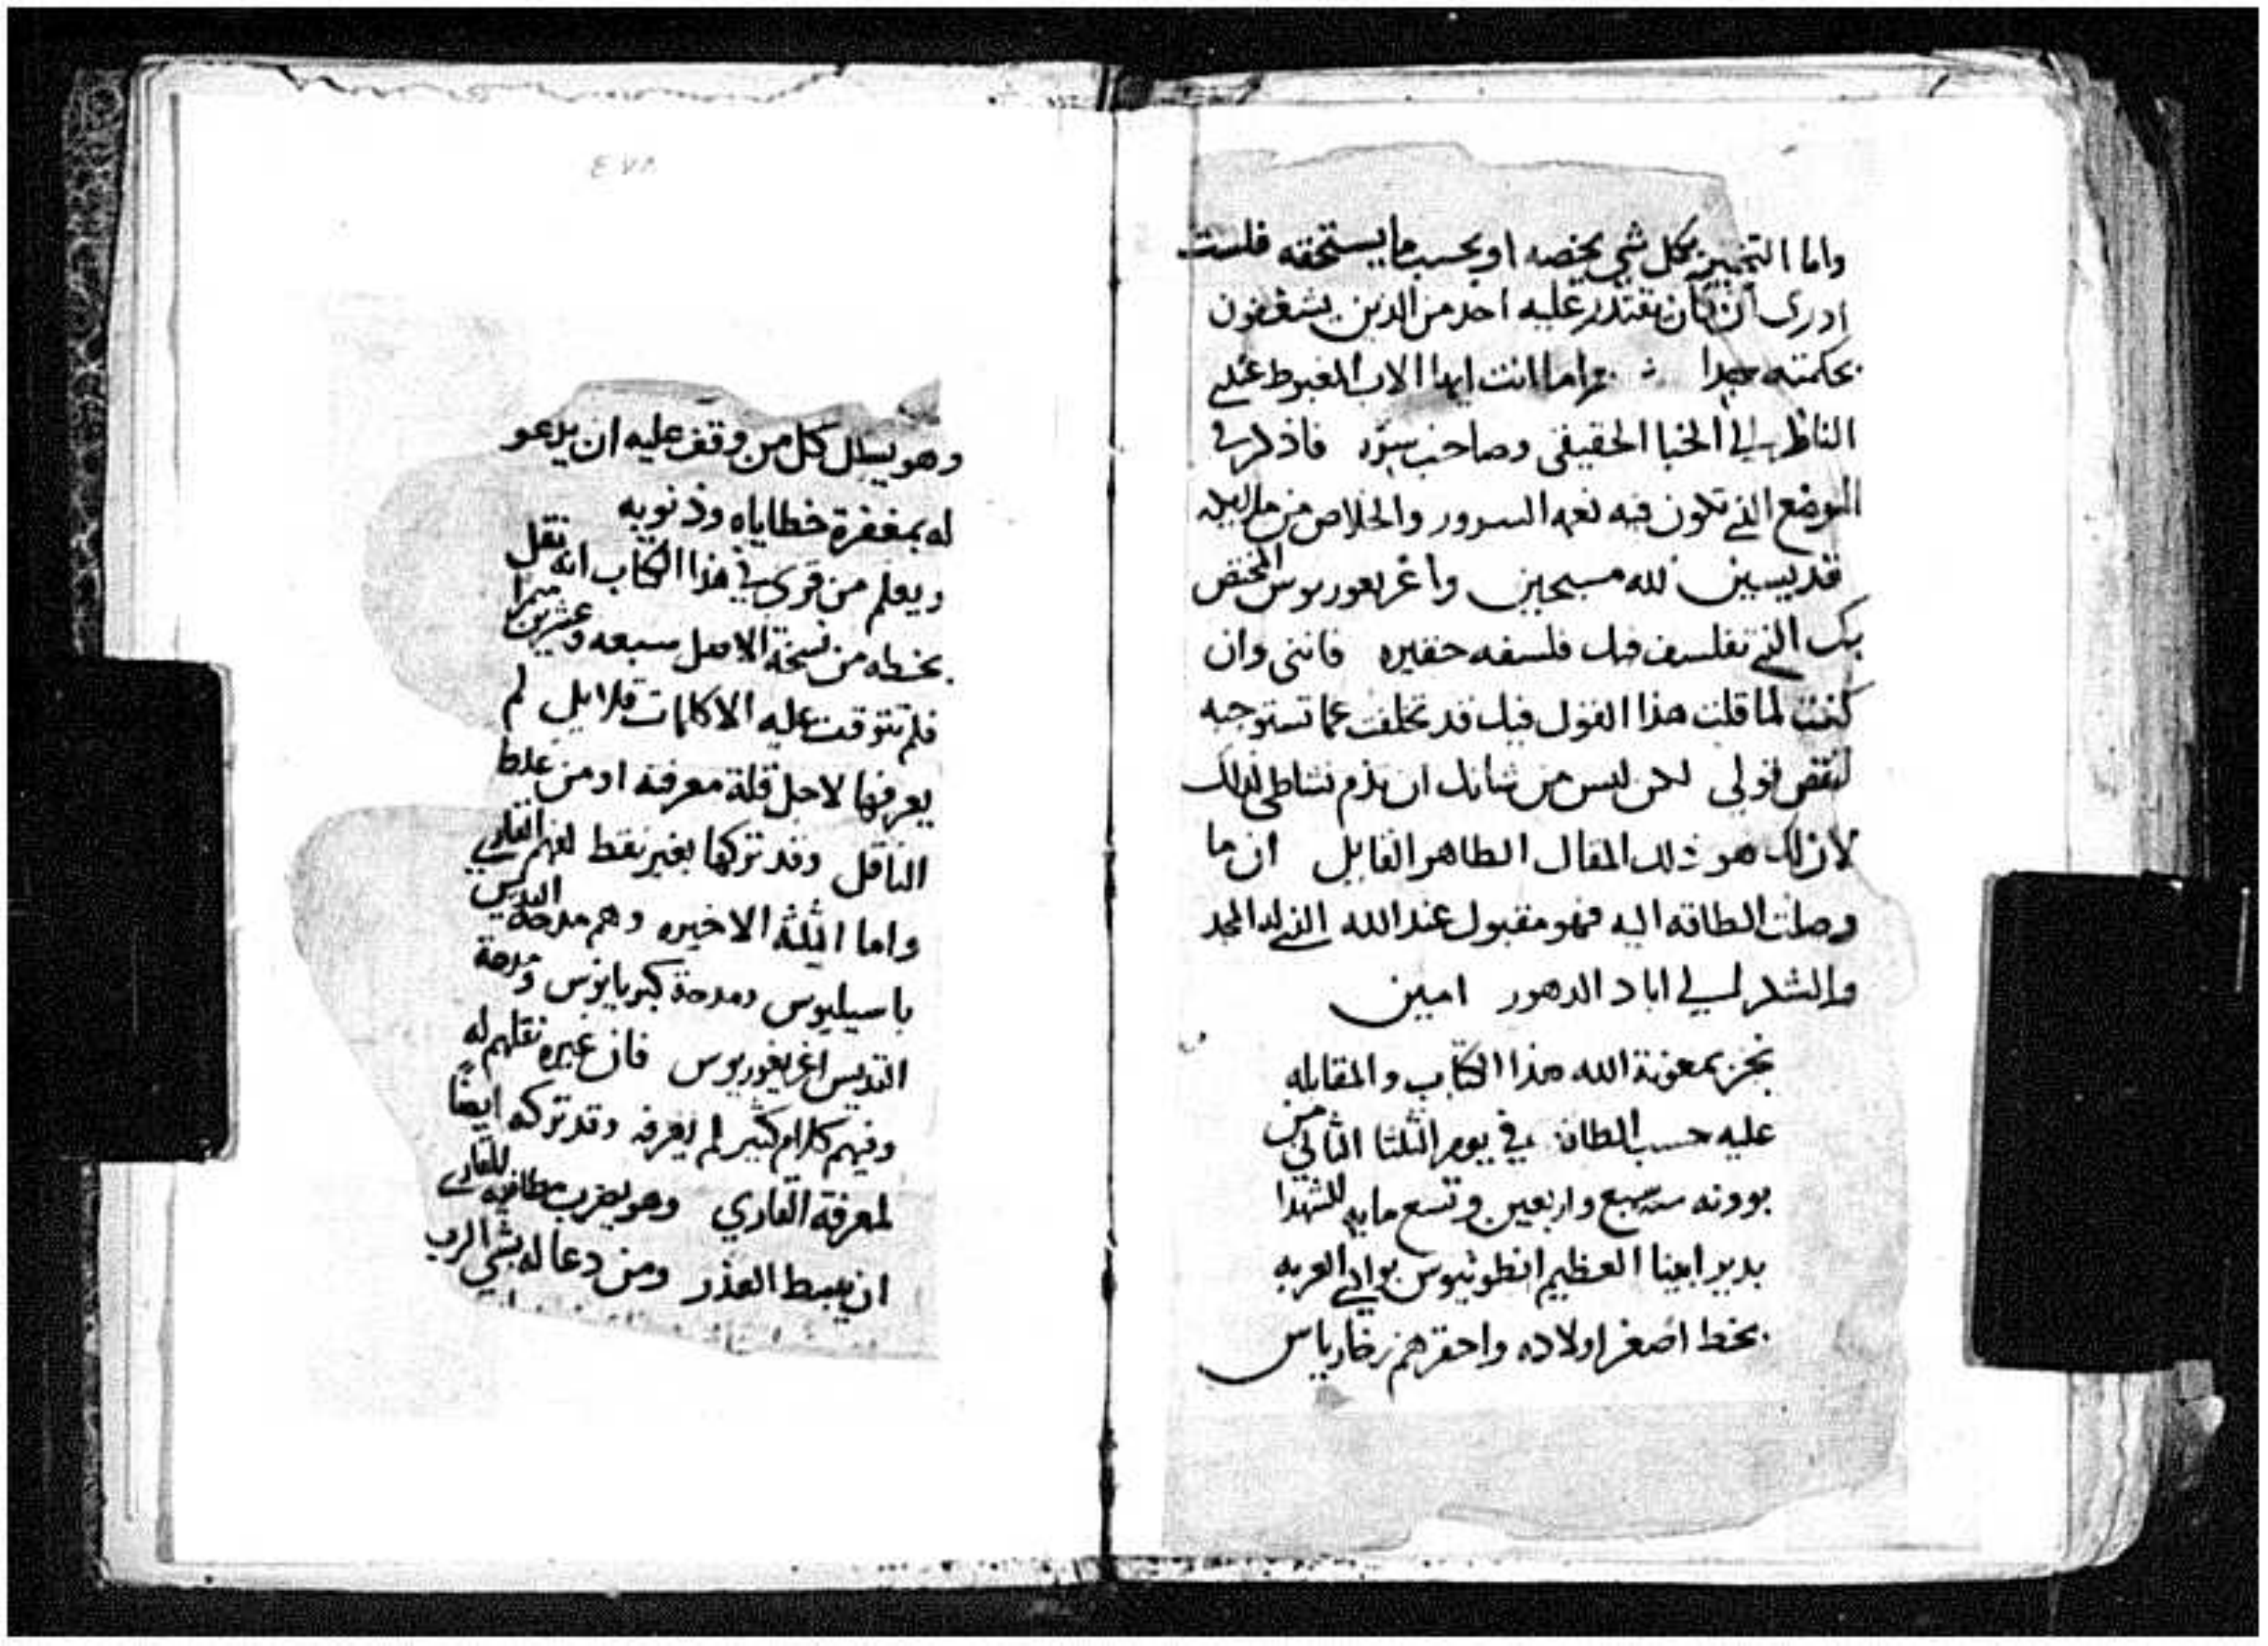 واما التمييز بكل شي يخصه او بحسب ما يستحقه فلست
ادرى ان كان يقتدر عليه احد من الذين يشغفون
بحكمته جدا واما انت ايها الاب المغبوط
الناظر الى الخبا الحقيقى وصاحب سره فاذكرنى
الموضع الذى تكون فيه نعمه السرور والخلاص من
قديسين لله مسيحيين واغريغوريوس المختص
بك الذى تفلسف فيك فلسفه حقيره فاننى وان
كنت لما قلت هذا القول فيك قد تخلفت عما تستوجبه
لنقص قولى لكن ليس من شانك ان تذم نشاطى لذلك
لان لك هو ذلك المقال الطاهر القايل ان ما
وصلت الطاقه اليه فهو مقبول عند الله الذى له المجد
والشكر الى اباد الدهور امين
نجز بمعونة الله هذا الكتاب والمقابله
عليه حسب الطاقه في يوم الثلثا الثانى من
بوونه سنه سبع واربعين وتسع مايه للشهدا
بدير ابينا العظيم انطونيوس بوادى العربه
بخط اصغر اولاده واحقرهم زخارياس
٤٧٨
وهو يسال كل من وقف عليه ان يدعو
له بمغفرة خطاياه وذنوبه
ويعلم من قرى في هذا الكتاب انه نقل
بخطه من نسخة الاصل سبعه وعشرين ميمرا
فلم تتوقف عليه الا كلمات قلايل لم
يعرفها لاجل قلة معرفته او من غلط
الناقل وقد تركها بغير نقط لفهم القارى
واما الثلثة الاخيره وهم مدحة القديس
باسيليوس ومدحة كبريانوس ومدحة
القديس اغريغوريوس فان غيره نقلهم له
وفيهم كلام كثير لم يعرفه وقد تركه ايضا
لمعرفة القاري وهو يضرب مطانيه للقارى
ان يبسط العذر ومن دعا له بشي الرب